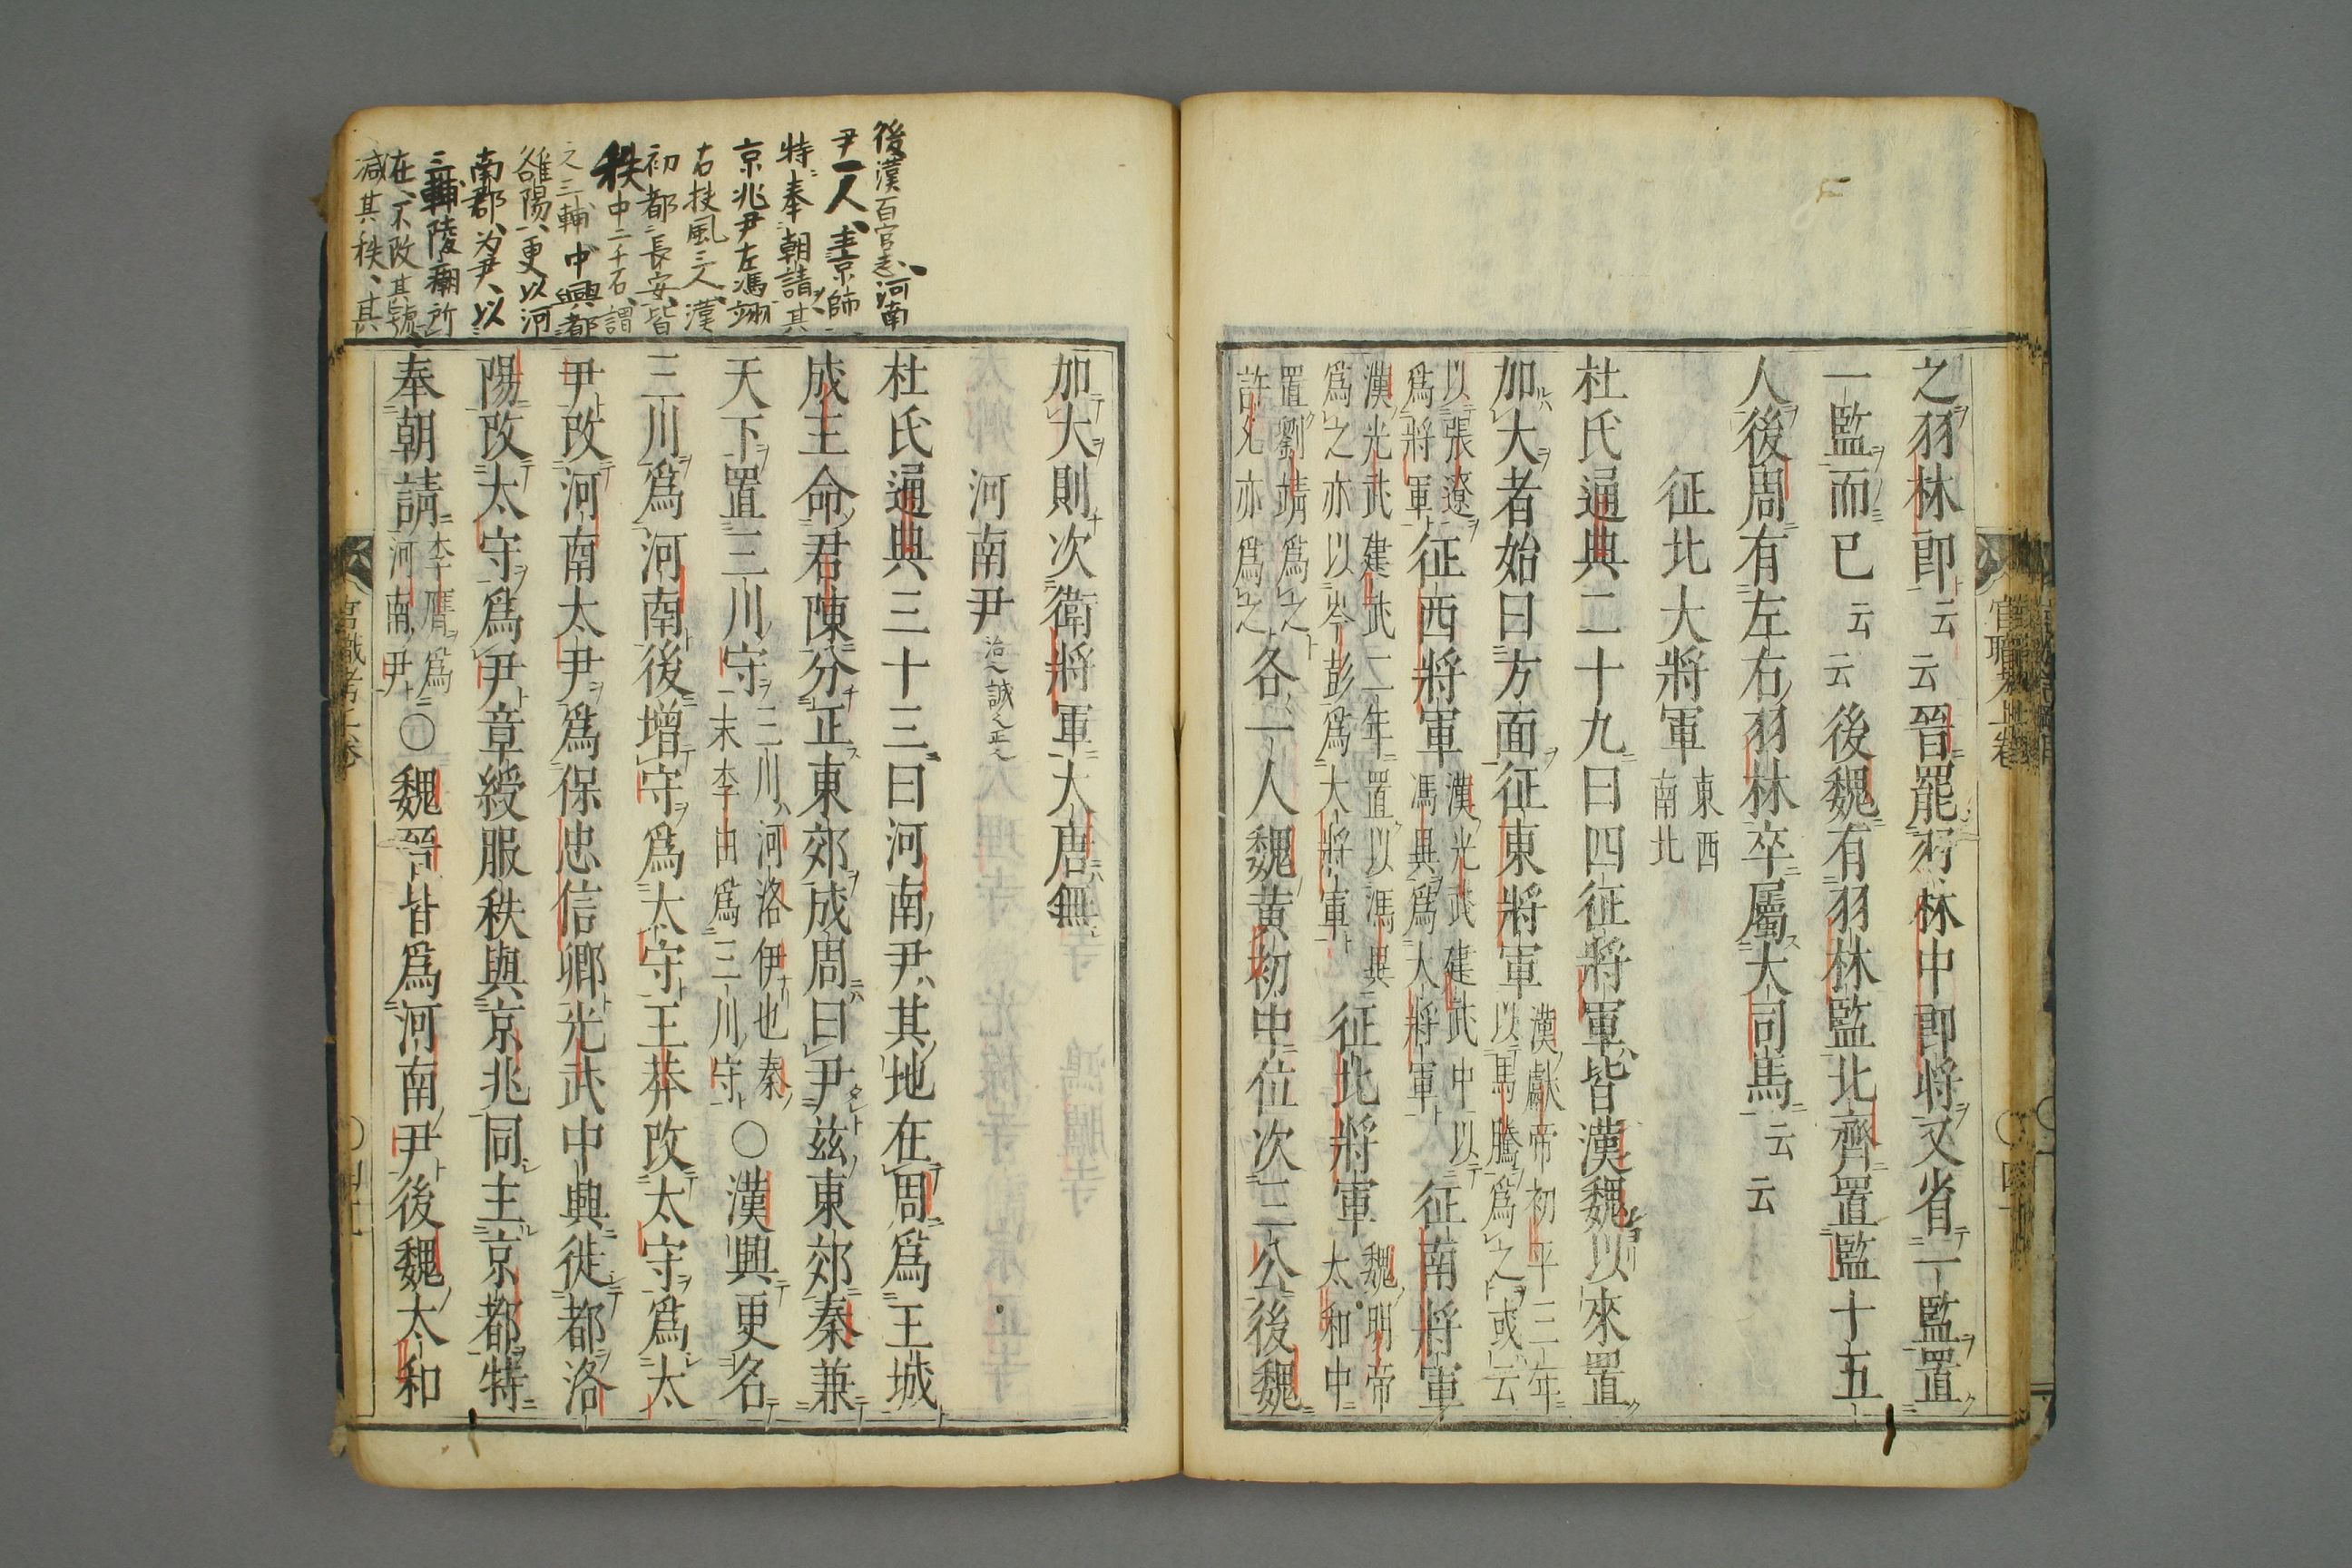 之羽林郎云云晉罷羽林中郎將又省一監置
一監而已云云後魏有羽林監北齊置監十五
人後周有左右羽林率屬大司馬云云
征北大將軍東西南北
杜氏通典二十九曰四征將軍皆漢魏以來置
加大者始曰方面征東將軍漢獻帝初平三年以馬騰爲之或云
以張遼爲將軍征西將軍漢光武建武中以馮異爲大將軍征南將軍
漢光武建武二年置以馮異爲之亦以岑彭爲大將軍征北將軍魏明帝太和中
置劉靖爲之許允亦爲之各一人魏黄初中位次三公後魏
加大則次衛將軍大唐無
河南尹
杜氏通典三十三曰河南尹其地在周爲王城
成王命君陳分正東郊成周曰尹茲東郊秦兼
天下置三川守三川河洛伊也秦末李由爲三川守〇漢興更名
三川爲河南後增守爲太守王莽改太守爲太
尹改河南太尹爲保忠信卿光武中興徙都洛
陽改太守爲尹章綬服秩與京兆同主京都特
奉朝請李膺爲河南尹〇魏晉皆爲河南尹後魏太和
後漢百官志河南
尹一人主京師
特奉朝請其
京兆尹左馮翊
右扶風三人漢
初都長安皆
秩中二千石謂
之三輔中興都
雒陽更以河
南郡为尹以
三輔陵廟所
在不改其號
減其秩其